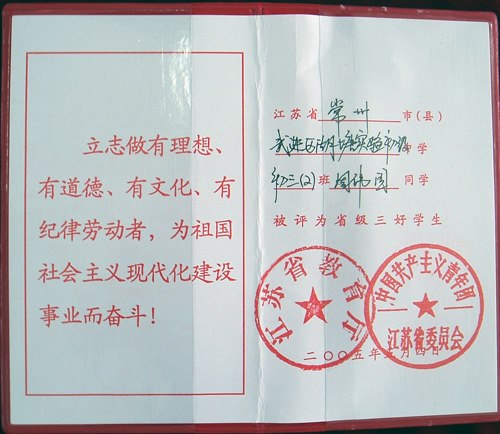 立志做有理想、
有道德、有文化、有
纪律劳动者，为祖国
社会主义现代化建设
事业而奋斗！
江苏省常州市(县)
武进区湖塘实验中学
初三(2)班周伟同学
被评为省级三好学生
江苏省教育厅
中国共产主义青年团
江苏省委员会
二〇〇五年五月四日